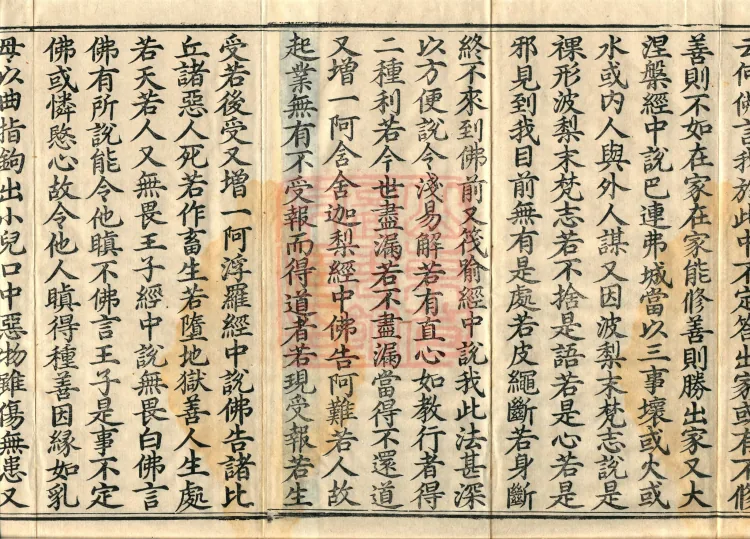 云何佛言我於此中不定答出家或有不修
善則不如在家在家能修善則勝出家又大
涅槃經中說巴連弗城當以三事壞或火或
水或內人與外人謀又因波梨末梵志說是
裸形波梨末梵志若不捨是語若是心若是
邪見到我目前無有是處若皮繩斷若身斷
終不來到佛前又筏喻經中說我此法甚深
以方便說令淺易解若有直心如教行者得
二種利若今世盡漏若不盡漏當得不還道
又增一阿含舍迦梨經中佛告阿難若人故
起業無有不受報而得道者若現受報若生
受若後受又增一阿浮羅經中說佛告諸比
丘諸惡人死若作畜生若墮地獄善人生處
若天若人又無畏王子經中說無畏白佛言
佛有所說能令他瞋不佛言王子是事不定
佛或憐愍心故令他人瞋得種善因緣如乳
母以曲指鉤出小兒口中惡物雖傷無患又